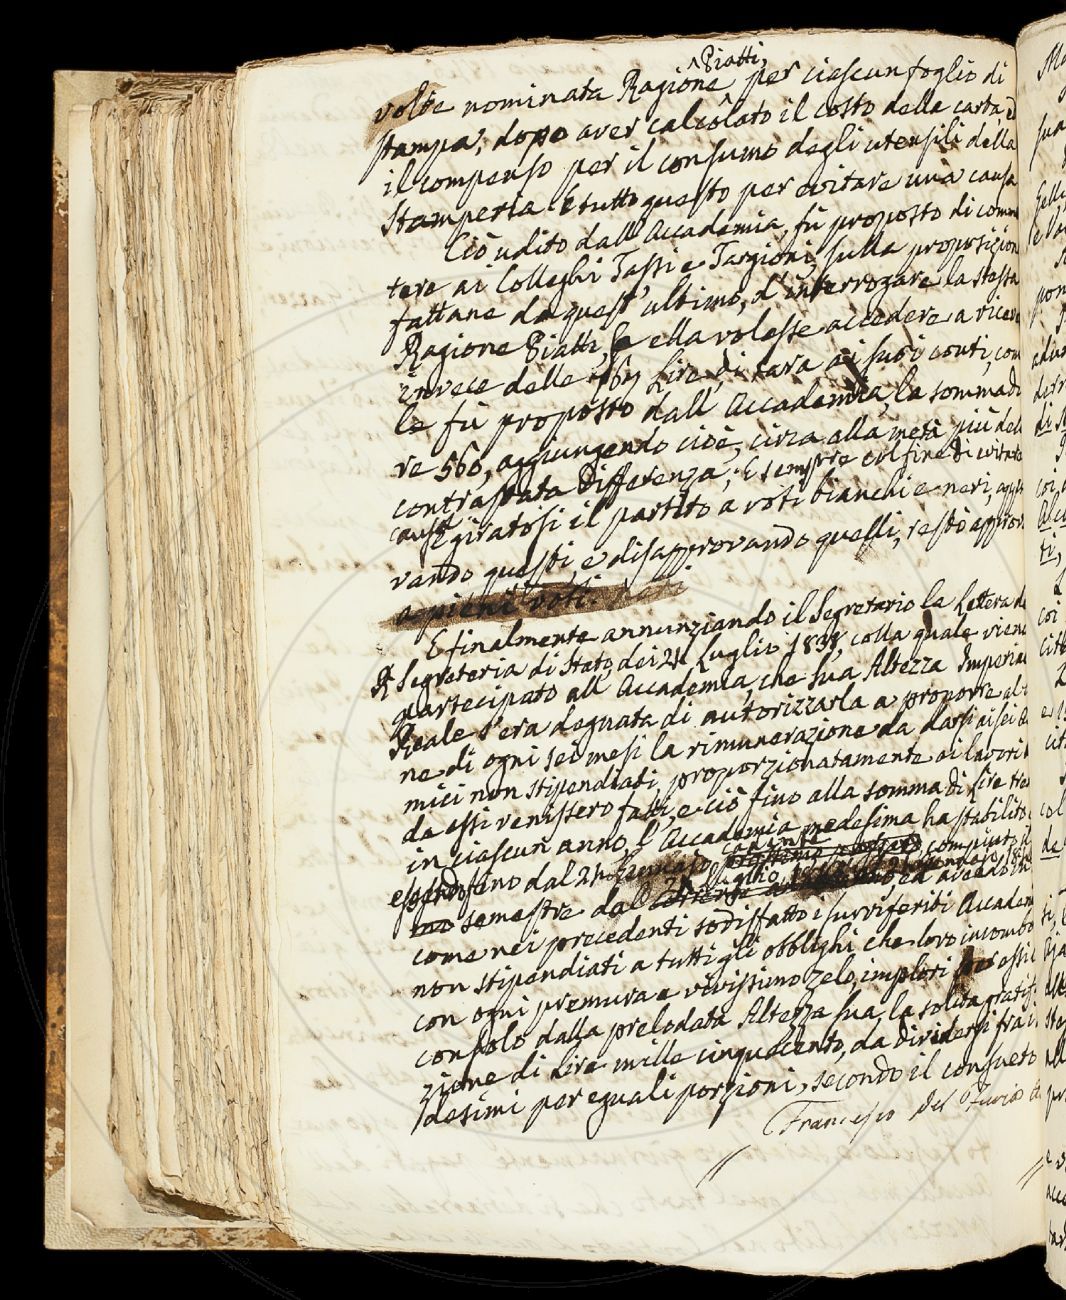 volte nominata Ragione ^Piatti, per ciascun foglio di
stampa, dopo aver calcolato il costo della carta, e
il compenso per il consumo degli utensili della
Stamperia. E tutto questo per evitare una causa
Ciò udito dall'Accademia, fù proposto di comm
tere ai Colleghi Tassi e Targioni, sulla proposizion
fattane da quest'ultimo, d'interrogare la stessa
Ragione Piatti, se ella volesse accedere a ricev
invece delle Lire di tara ai suoi conti, com
le fù proposto dall'Accademia, la somma di
re 560, aggiungendo cioè, circa alla metà più del
contrastata differenza; E sempre col fine di evitare
cause
E giratosi il partito a voti bianchi e neri, app
vando questi, e disapprovando quelli, restò approv
a pieni voti.
E finalmente annunziando il Segretario la Lettera d
R Segreteria di Stato, dei 24 Luglio 1838, colla quale viene
partecipato all'Accademia, che Sua Altezza Imperial
Reale s'era degnata di autorizzarla a proporre al
ne di ogni sei mesi la rimunerazione da darsi ai sei
mici non stipendiati, proporzionatamente ai lavori
da essi venissero fatti, e ciò fino alla somma di Lire tre
in ciascun anno, l'Accademia medesima ha stabilito
essendo fino dal 24 Gennaio cadente compiuto
semestre dal ed avendo
come nei precedenti sodisfatto i surriferiti Accadem
non stipendiati a tutti gli obblighi che loro incombo
con ogni premura e vivissimo zelo, implori essi
con solo dalla prelodata Altezza Sua, la solita gratif
zione di Lire mille cinquecento, da dividersi fra i
desimi per eguali porzioni, secondo il consueto
Francesco del Furia